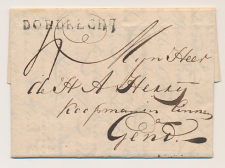 DORDRECHT
Mijn Heer
de H A Hessy
Koopman in Linnen
Gend.